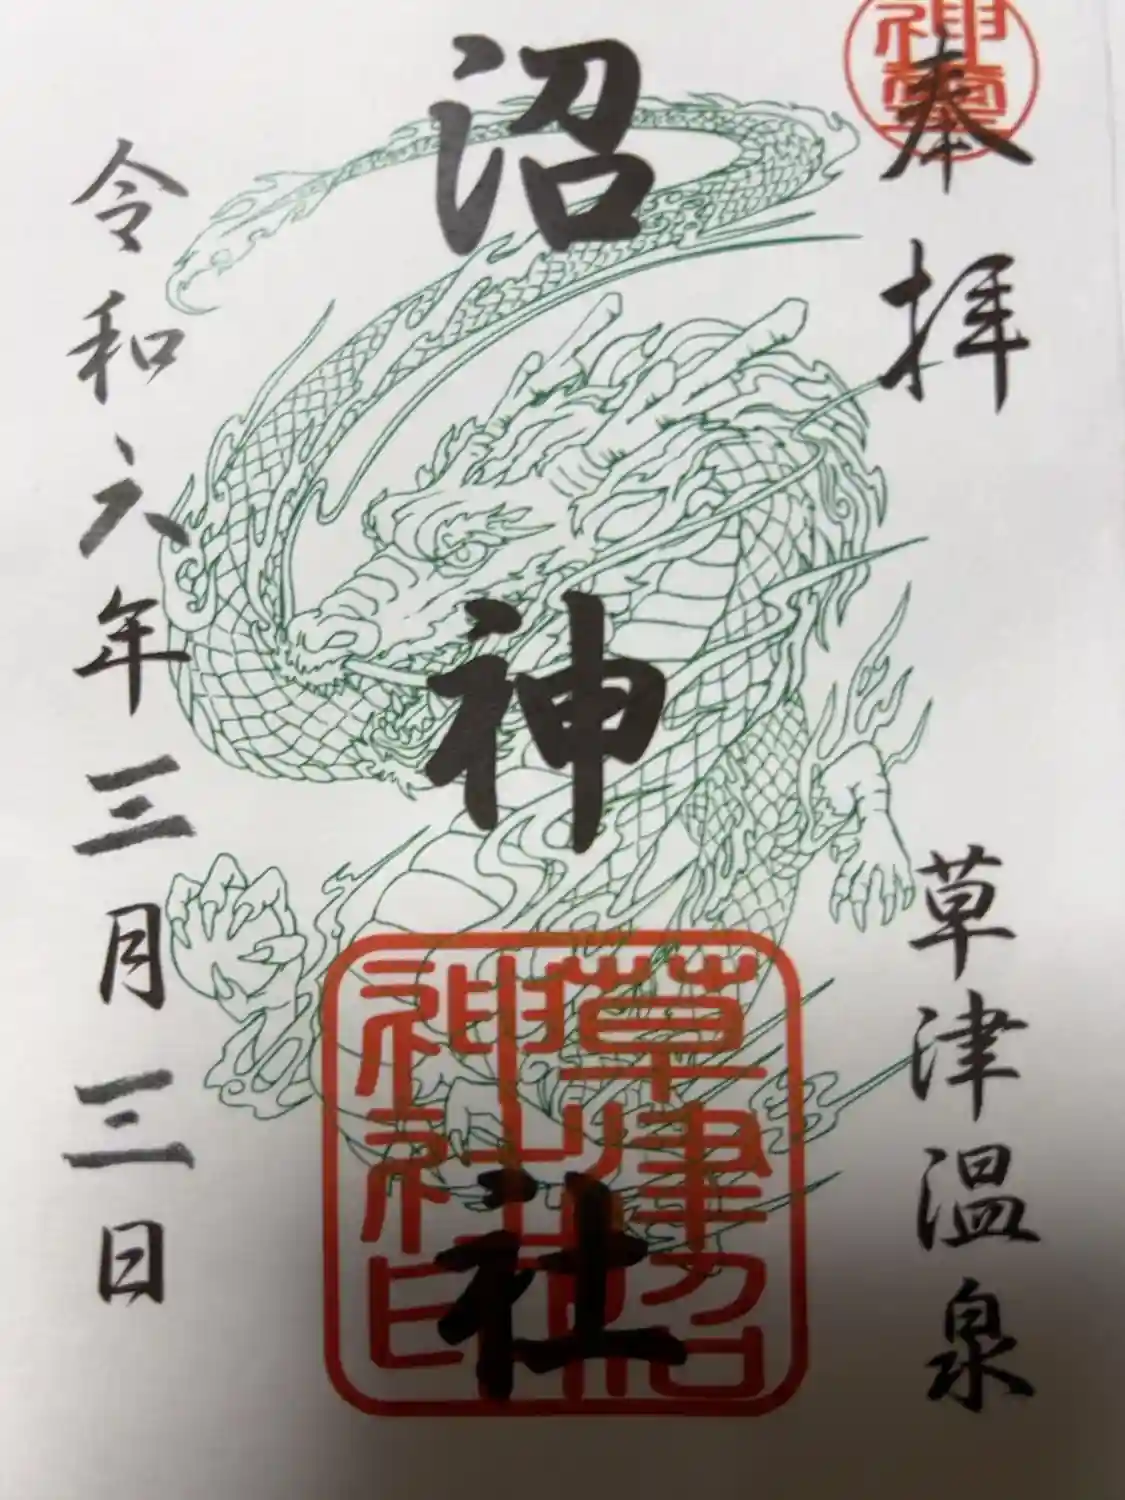 奉拝
草津温泉
沼神社
令和六年三月三日
草津沼
神社印